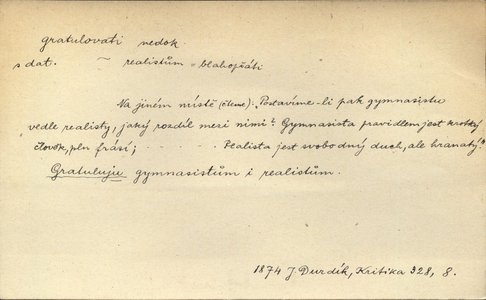 gratulovati nedok.
s dat. ~ realistům = blahopřáti
Na jiném místě (čteme): „Postavíme-li pak gymnasistu
vedle realisty, jaký rozdíl mezi nimi? Gymnasista pravidlem jest krotký
člověk, pln frásí; - - - - - - Realista jest svobodný duch, ale hranatý."
Gratuluju gymnasistům i realistům.
1874 J. Durdík, Kritika 328, 8.